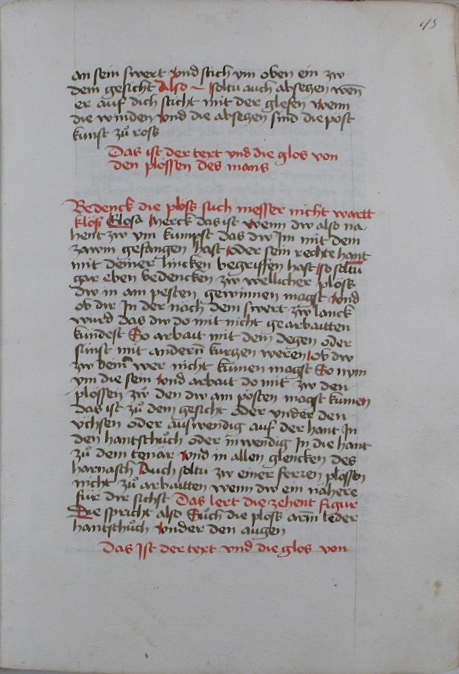 43
an sein swert vnd stich vm oben ein zw
dem gesicht Also soltu auch absehen wen̄
er auf dich sticht mit der glefen wenn
die winden vnd die absehen sind die pest
kunst zů ross
Das ist der text vnd die glos von
den plossen des mans
Bedenck die ploss such messer nicht wartt
kloss Glosa Merck das ist wenn dw also na
hent zw vm kumpst das dw Im mit dem
zawm gefangen hast oder sein rechte hant
mit deiner lincken begriffen hast so soltu
gar eben bedencken zw wellicher ploss
dw in am pesten gewinnen magst vnd
ob dir In der nach dem swert zw lanck
wurd das dw do mit nicht gearbaitten
kundest So arbait mit dein degen oder
sunst mit andern kurczen weren ob dw
zw deiner wer nicht kumen magst So nym
vm die sein vnd arbait do mit zw den
plossen zw den dw am pesten magst kumen
das ist zu dem gesicht oder vnder den
vchsen oder auswendig auf der hant In
den hantschuch oder inwendig In die hant
zů dem tenar vnd in allen glencken des
harnasch Auch soltu zw einer ferren plossen
nicht zů arbaitten wenn dw ein nähere
für dir sichst Das lert die zehent figur
Die spricht also Such die ploss arm leder
hantschůch vnder den augen
Das Ist der text vnd die glos von